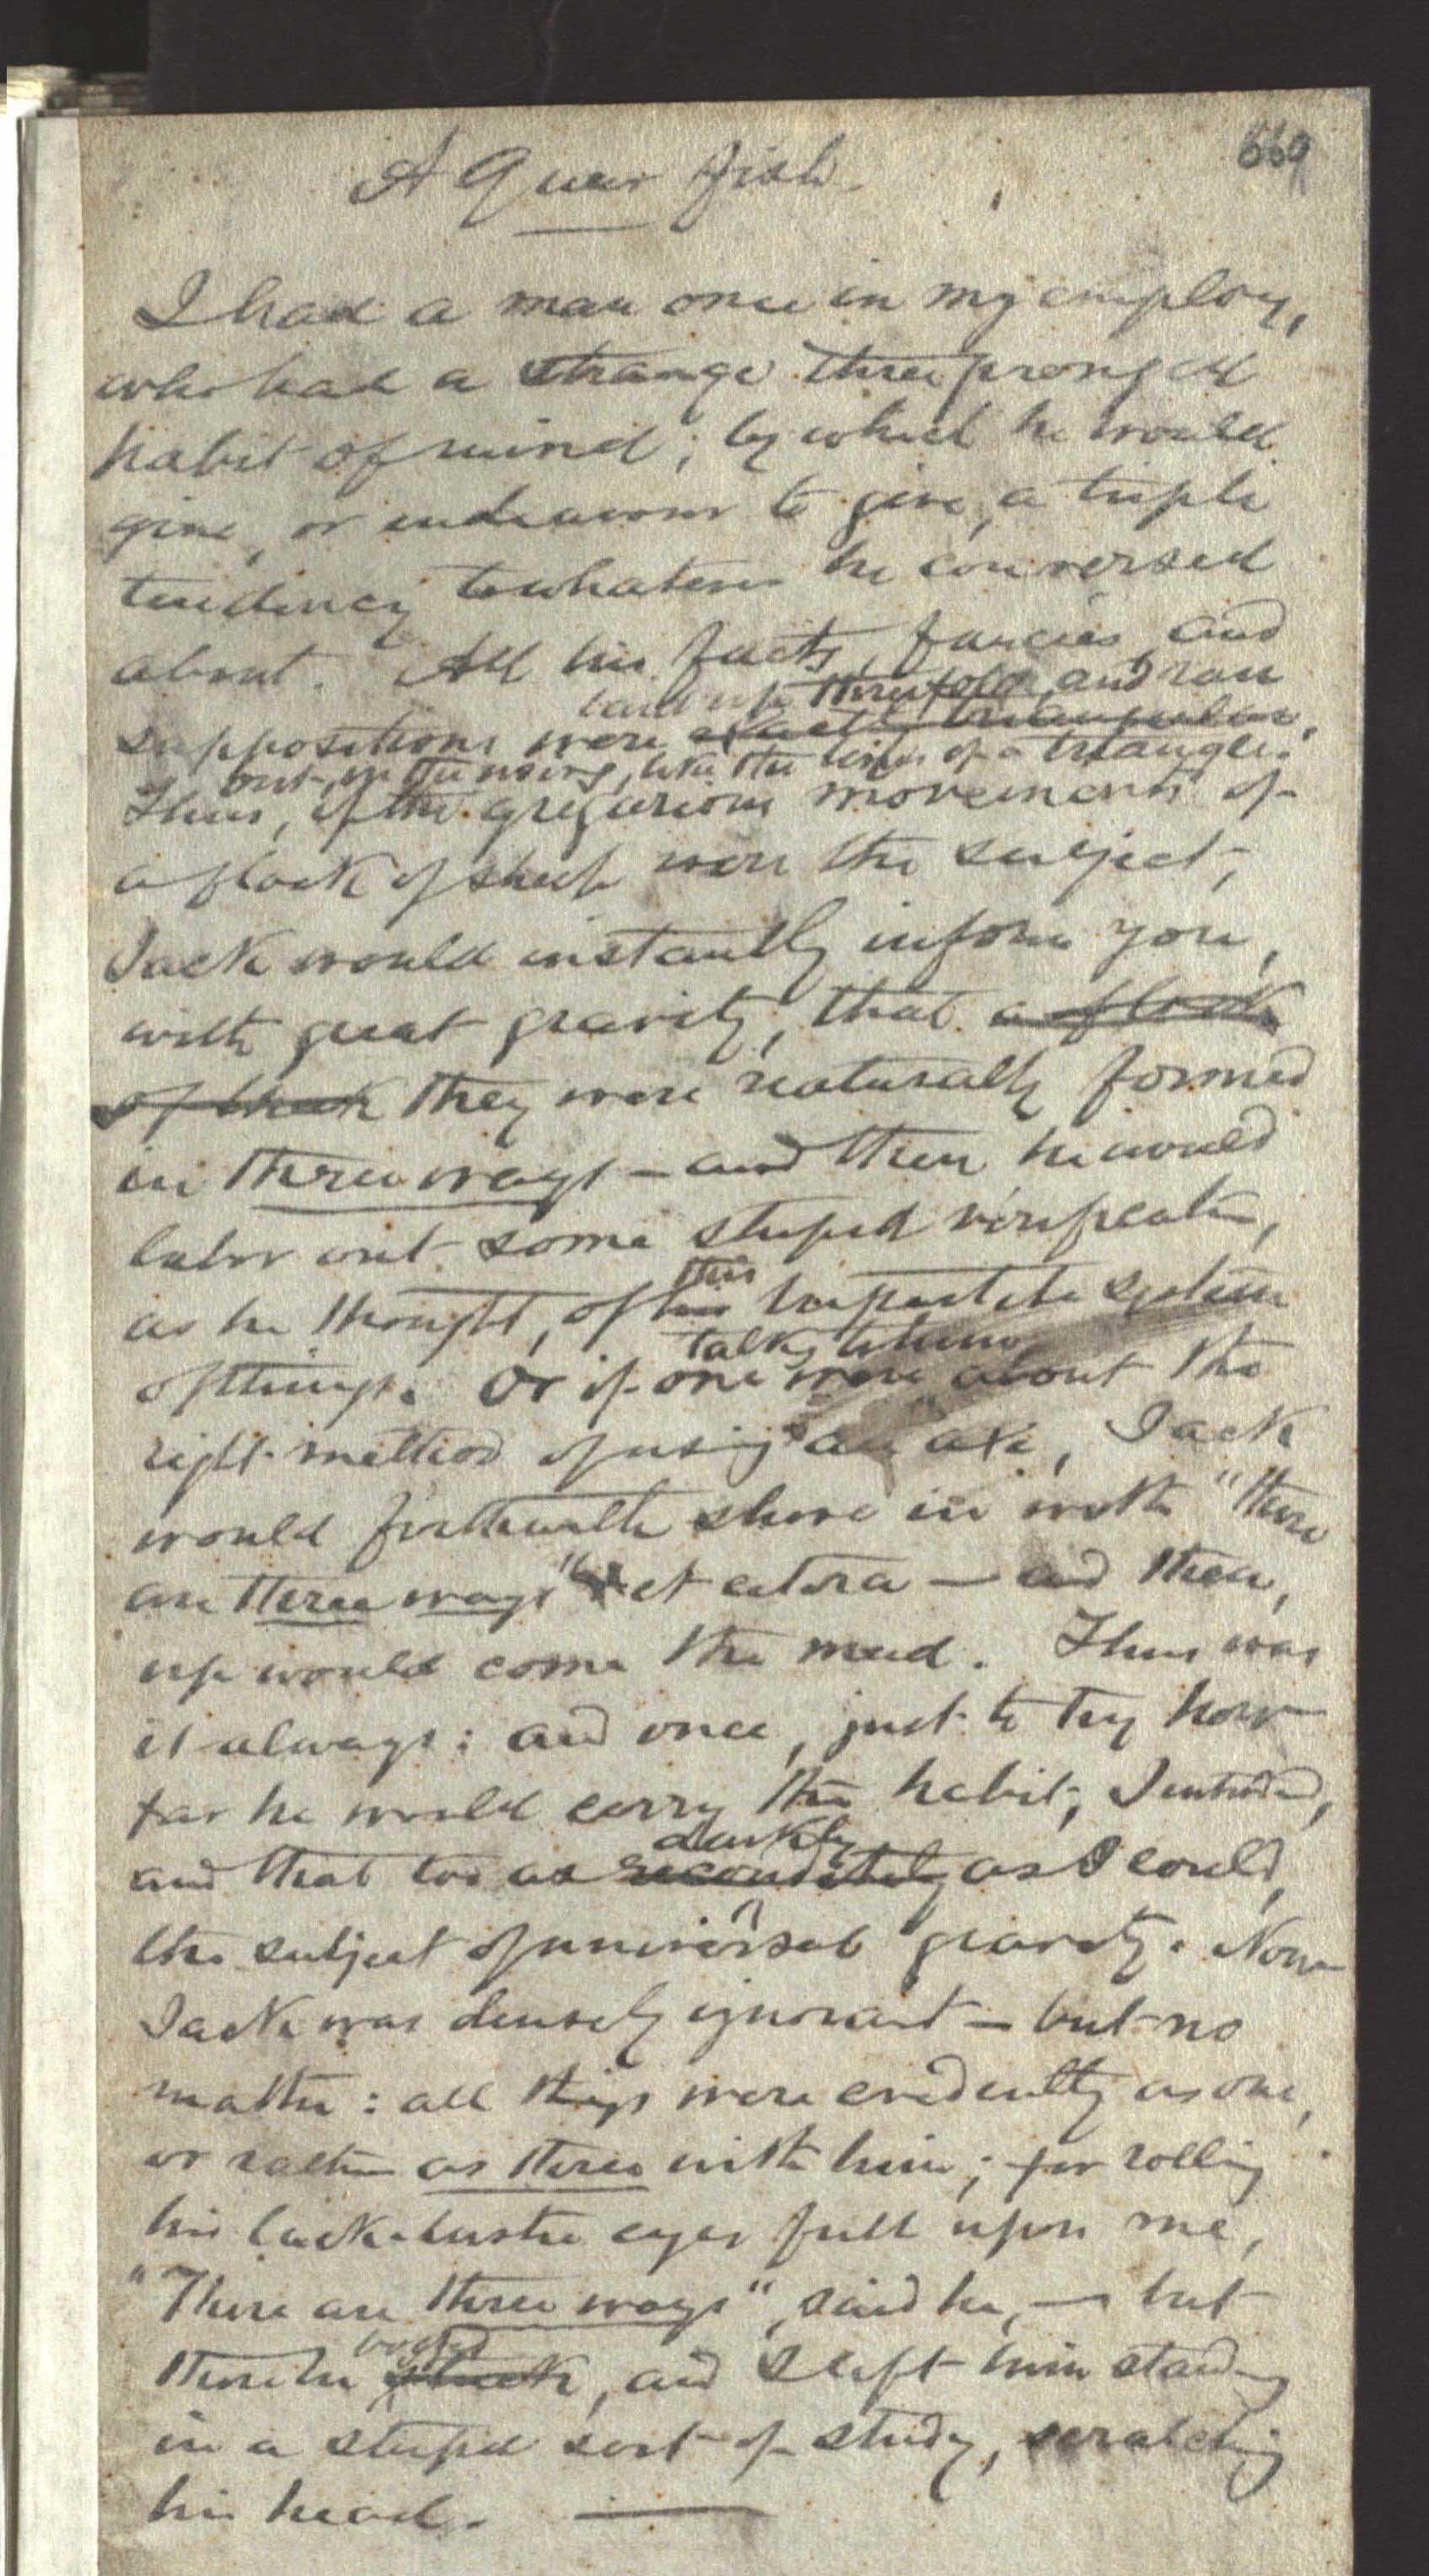 669
A Queer fish.
I had a man once in my employ,
who had a strange three pronged
habit of mind; by which he would
give, or endeavour to give, a triple
tendency to whatever he conversed
about. All his facts, fancies, and
threefold, and ran
suppositions were exactly triangular.
out in the using, like the lines of a triangle.
Thus, if the gregarious movements of
a flock of sheep were the subject,
Jack would instantly inform you,
with great gravity, that a flock
of sheep they were naturally formed
in three ways – and then he would
labor out some stupid verification,
this
as he thought, of his tripartite system
talking to him
of things. Or if one were about the
right method of using an axe, Jack
would forthwith shove in with "there
are three ways" et cetera – and then,
up would come the mud. Thus was
it always: and once, just to try how
far he would carry the habit, I introd,
darkly
and that too as reconditely as I could,
the subject of universal gravity. Now
Jack was densely ignorant – but no
matter: all things were evidently as one,
or rather as three with him; for rolling
his lack-lustre eyes full upon me,
"There are three ways", said he, – but
bogged
there he stuck, and I left him standing
in a stupid sort of study, scratching
his head. —